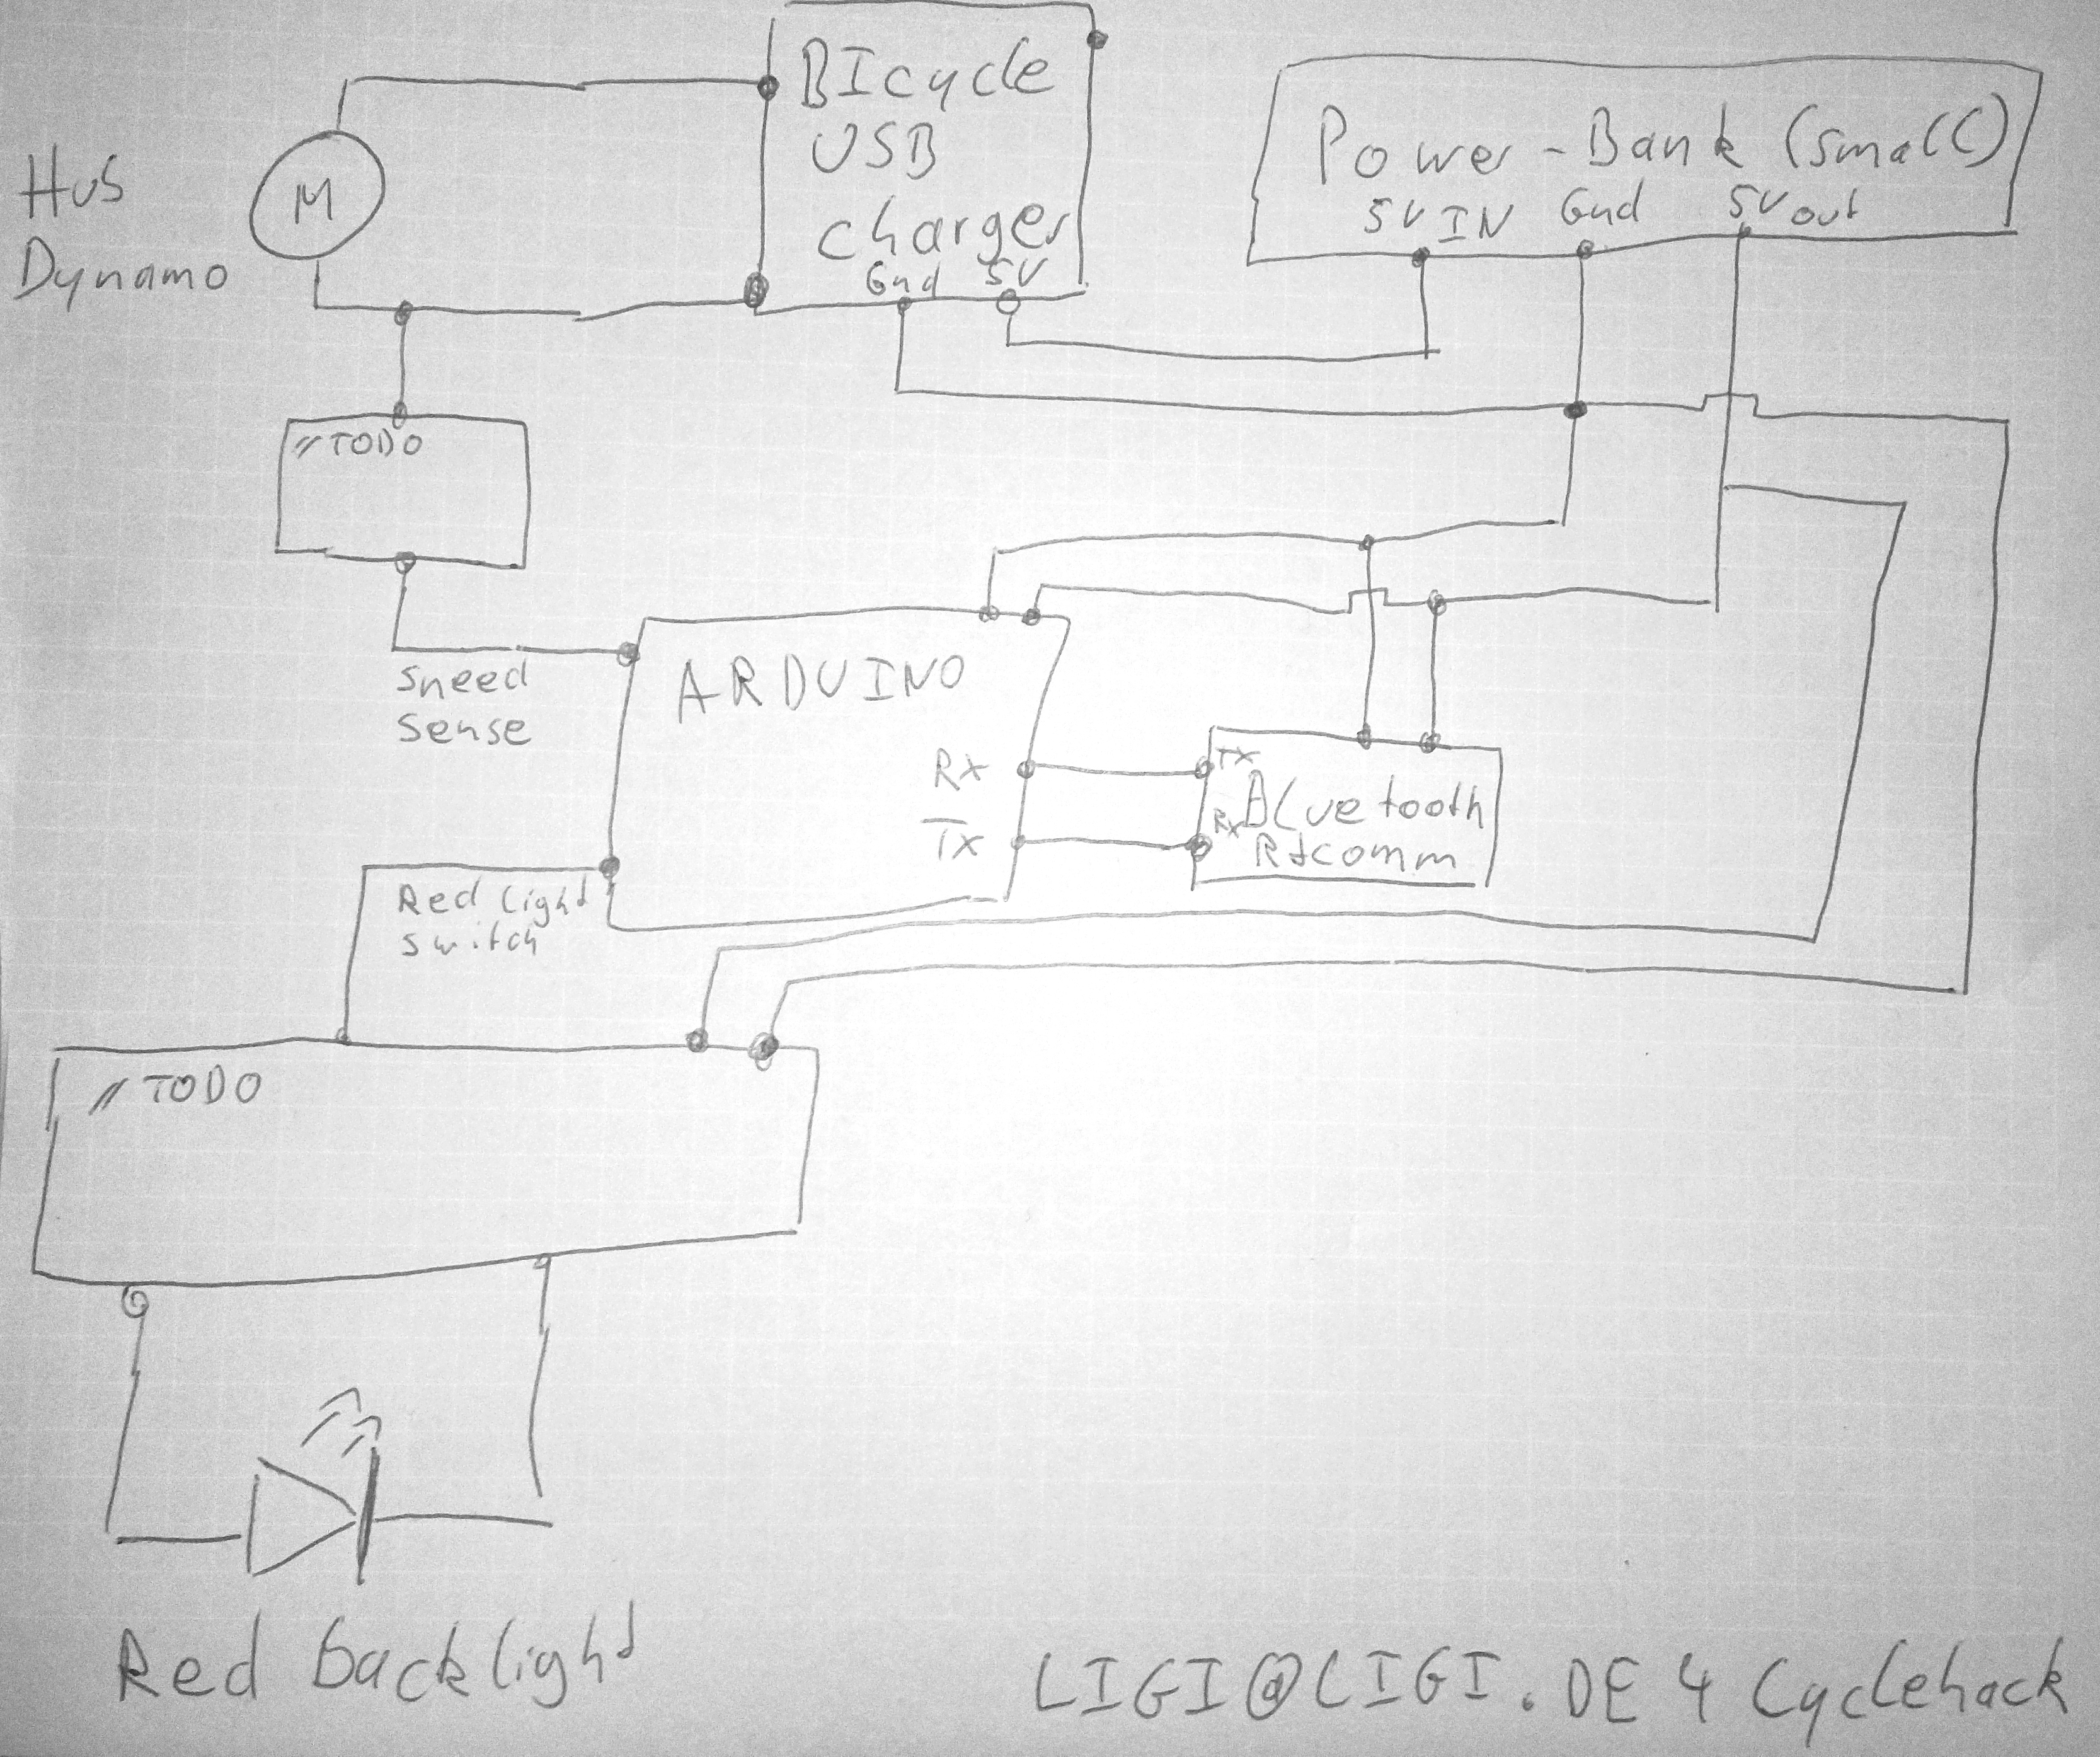 BIcycle
USB
charger
Gnd 5V
Power-Bank (small)
5V IN Gnd 5V out
Hub
Dynamo
M
//TODO
Speed
sense
ARDUINO
Rx
Tx
TX
RX
Bluetooth
Rfcomm
Red light
switch
//TODO
Red backlight
LIGI@LIGI.DE 4 Cyclehack